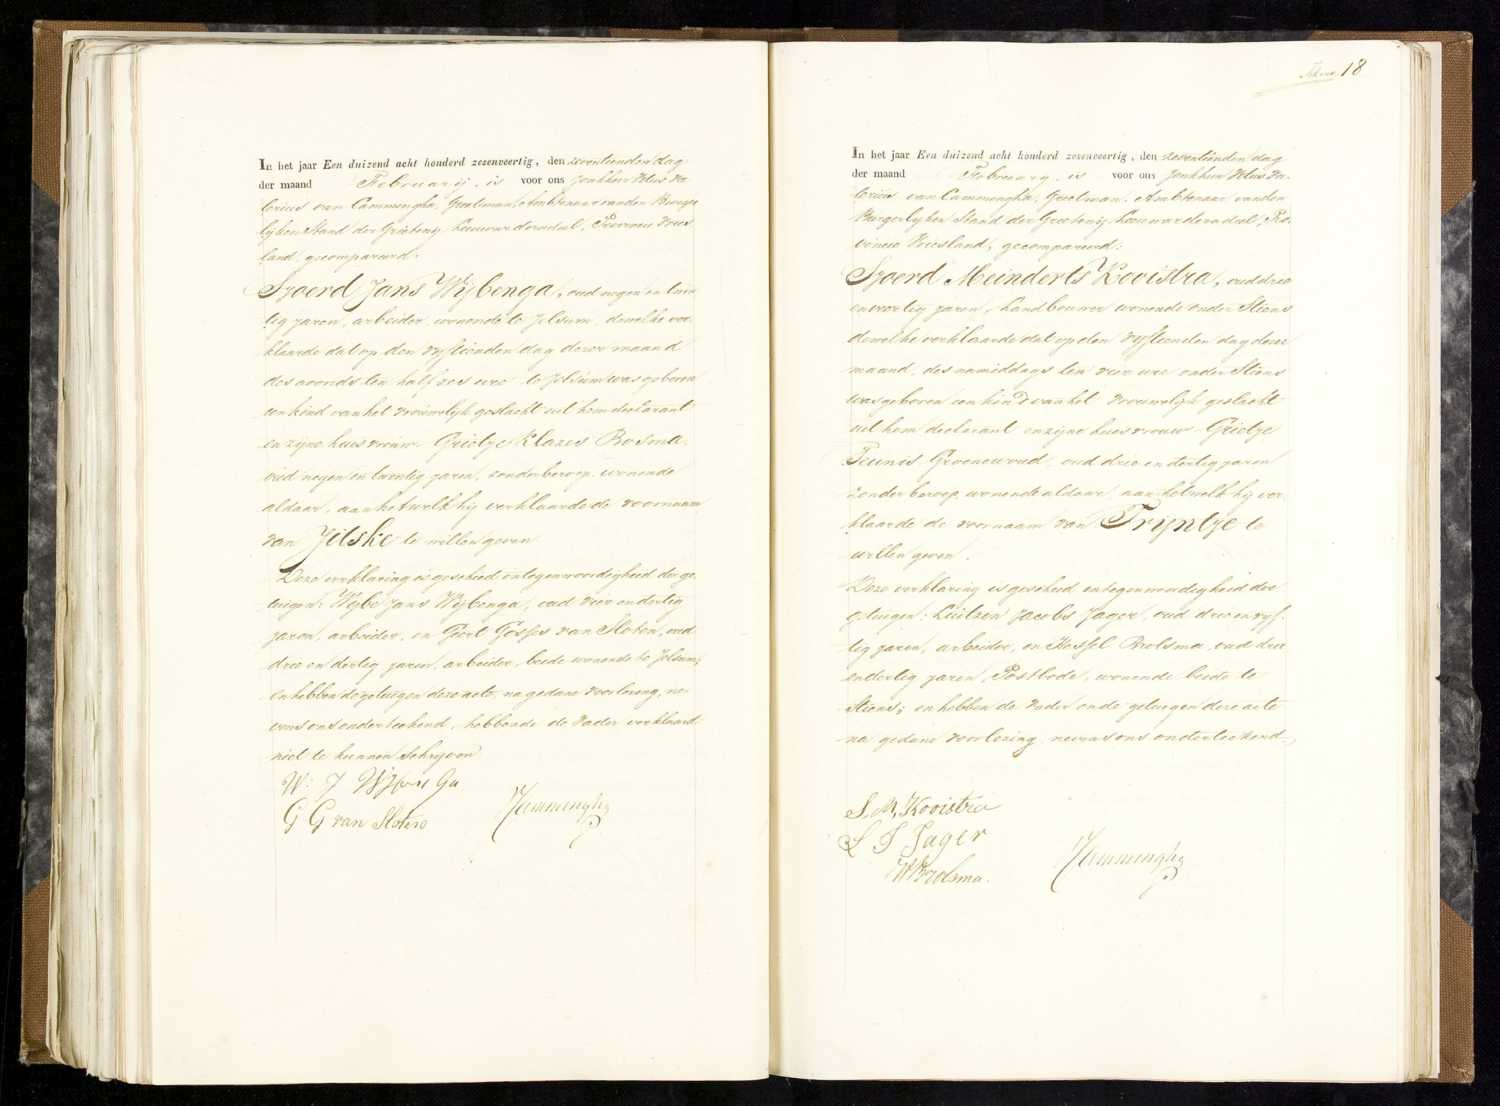 In het jaar Een duizend acht honderd zesenveertig, den zeventienden dag
der maand Februarij, is voor ons Jonkheer Vitus Va-
lerius van Cammingha, Grietman, Ambtenaar van den Burger
lijken Stand der Grietenij Leeuwarderadeel, Provincie Vries
land, gecompareerd:
Sjoerd Jans Wijbenga, oud negen en twin
tig jaren, arbeider, wonende te Jelsum, dewelke ver-
klaarde dat op den vijftienden dag dezer maand
des avonds ten half zes ure te Jelsum was geboren
een kind van het vrouwelijk geslacht uit hem declarant
en zijne huisvrouw Grietje Klazes Bosma,
oud negen en twentig jaren, zonder beroep, wonende
aldaar, aan hetwelk hij verklaarde de voornaam
van Jitske te willen geven
Deze verklaring is geschied in tegenwoordigheid der ge-
tuigen: Wijbe Jans Wijbenga, oud vier en dertig
jaren, arbeider, en Geert Gosses van Sloten, oud
drie en dertig jaren, arbeider, beide wonende te Jelsum;
en hebben de getuigen deze acte, na gedane voorlezing, ne-
vens ons onderteekend, hebbende de Vader verklaard
niet te kunnen schrijven
W: J Wijbenga
G G van Sloten
VVCammingha
18
In het jaar Een duizend acht honderd zesenveertig, den zeventienden dag
der maand Februarij, is voor ons Jonkheer Vitus Va-
lerius van Cammingha, Grietman, Ambtenaar van den
Burgerlijken Stand der Grietenij Leeuwarderadeel, Pro-
vincie Vriesland, gecompareerd:
Sjoerd Meinderts Kooistra, oud drie
en veertig jaren, landbouwer wonende onder Stiens
dewelke verklaarde dat op den vijftienden dag dezer
maand, des namiddags ten vier ure onder Stiens
was geboren een kind van het vrouwelijk geslacht
uit hem declarant en zijne huisvrouw Grietje
Teunis Groenewoud, oud drie en dertig jaren
zonder beroep, wonende aldaar, aan hetwelk hij ver-
klaarde de voornaam van Trijntje te
willen geven.
Deze verklaring is geschied in tegenwoordigheid der
getuigen: Luitzen Jacobs Jager, oud drie en vijf-
tig jaren, arbeider, en Wessel Brolsma, oud drie
en dertig jaren, Postbode, wonende beide te
Stiens; en hebben de Vader en de getuigen deze acte
na gedane voorlezing nevens ons onderteekend.
S. M. Kooistra
L J Jager
W Brolsma.
VVCammingha